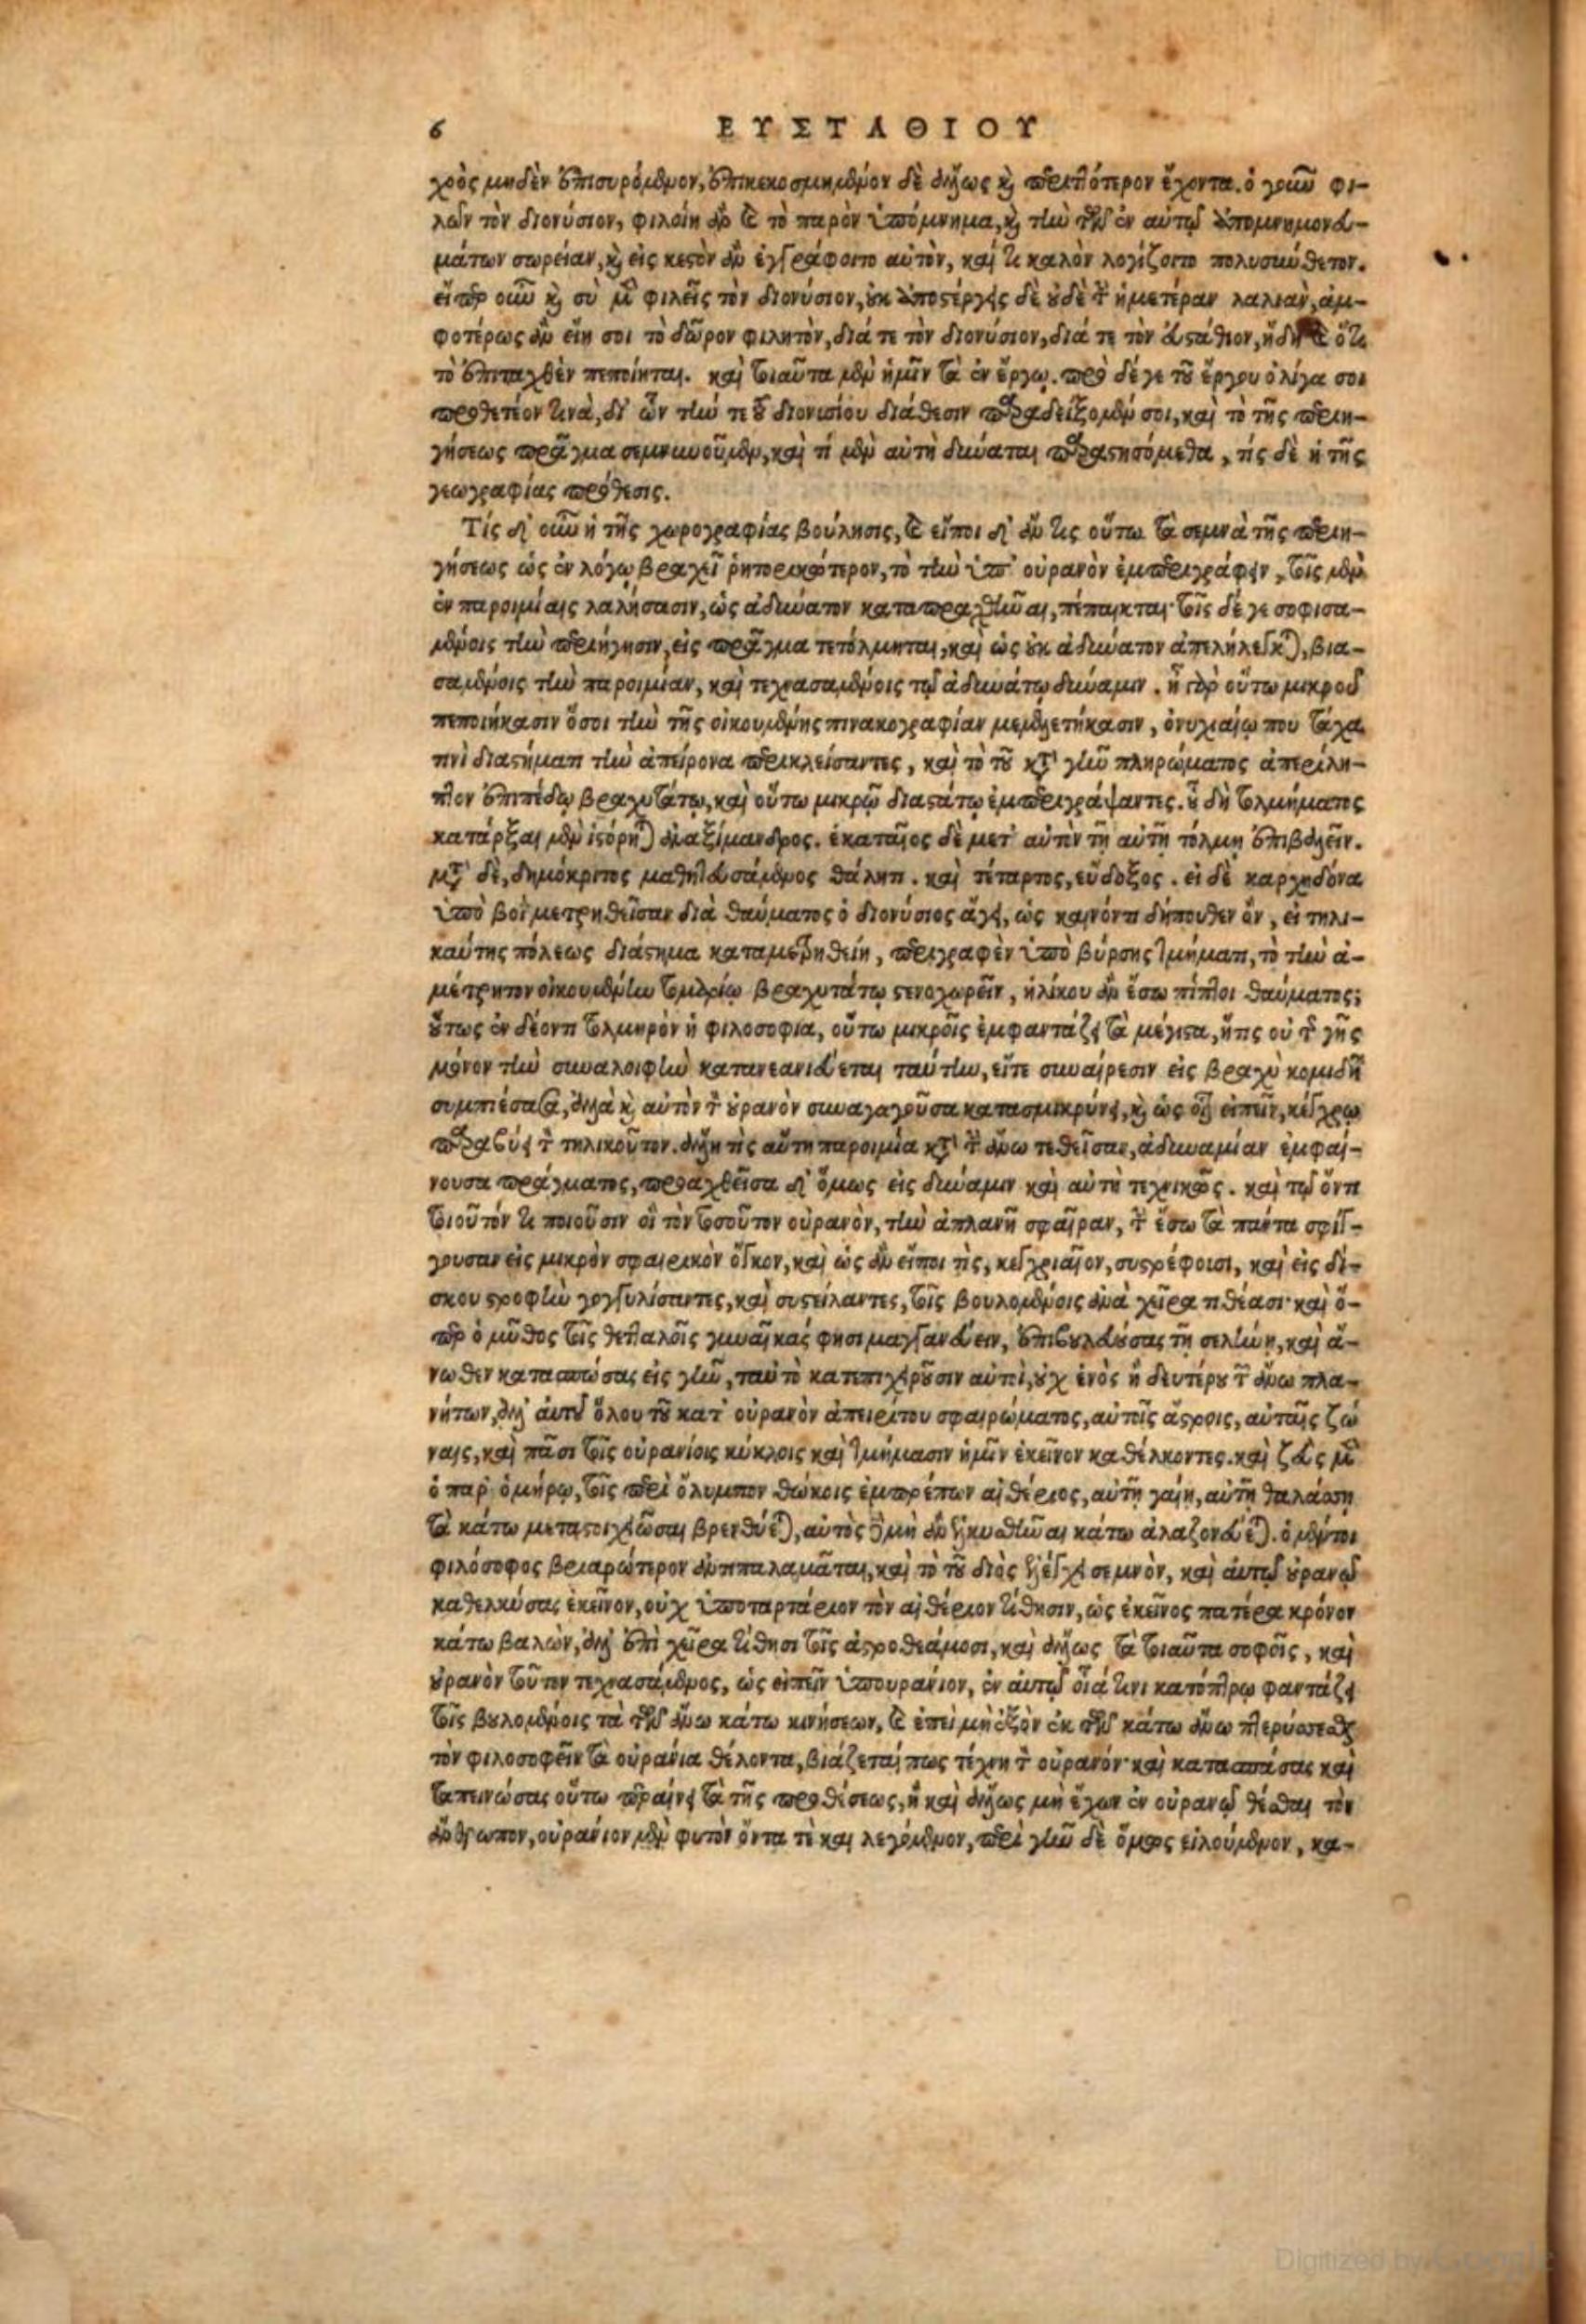 6 ΕΥΣΤΑΘΙΟΥ
χρὸς μηδὲν ἐπισυρόμενον, ἐπικεκοσμημένον δὲ ἄλλως καὶ περιττότερον ἔχοντα. ὁ γοῦν φι-
λῶν τὸν διονύσιον, φιλοίη ἂν καὶ τὸ παρὸν ὑπόμνημα, καὶ τὴν τῶν ἐν αὐτῷ ἀπομνημονευ-
μάτων σωρείαν, καὶ εἰς κεστὸν ἂν ἐγγράφοιτο αὐτὸν, καί τι καλὸν λογίζοιτο πολυσύνθετον.
εἴπερ οὖν καὶ σὺ μὲν φιλεῖς τὸν διονύσιον, οὐκ ἀποστέργεις δὲ οὐδὲ τὴν ἡμετέραν λαλιὰν, ἀμ-
φοτέρως ἂν εἴη σοι τὸ δῶρον φιλητὸν, διά τε τὸν διονύσιον, διά τε τὸν εὐστάθιον, ἤδη καὶ ὅτι
τὸ ἐπιταχθὲν πεποίηται. καὶ τοιαῦτα μὲν ἡμῖν τὰ ἐν ἔργῳ. πρὸ δέ γε τοῦ ἔργου ὀλίγα σοι
προθετέον τινὰ, δι' ὧν τήν τε τοῦ διονυσίου διάθεσιν παραδείξομέν σοι, καὶ τὸ τῆς περιη-
γήσεως πρᾶγμα σεμνυνοῦμεν, καὶ τί μὲν αὐτὴ δύναται παραστησόμεθα, τίς δὲ ἡ τῆς
γεωγραφίας πρόθεσις.
Τίς δ' οὖν ἡ τῆς χωρογραφίας βούλησις, καὶ εἴποι δ' ἄν τις οὕτω τὰ σεμνὰ τῆς περιη-
γήσεως ὡς ἐν λόγῳ βραχεῖ ῥητορικώτερον, τὸ τὴν ὑπ' οὐρανὸν ἐμπεριγράφειν, τοῖς μὲν
ἐν παροιμίαις λαλήσασιν, ὡς ἀδύνατον καταπραχθῆναι, πέπαικται· τοῖς δέ γε σοφισα-
μένοις τὴν περιήγησιν, εἰς πρᾶγμα τετόλμηται, καὶ ὡς οὐκ ἀδύνατον ἀπελήλεγκται, βια-
σαμένοις τὴν παροιμίαν, καὶ τεχνασαμένοις τῷ ἀδυνάτῳ δύναμιν. ἦ γὰρ οὕτω μικροῦ
πεποιήκασιν ὅσοι τὴν τῆς οἰκουμένης πινακογραφίαν μεμελετήκασιν, ὀνυχιαίῳ που τάχα
τινὶ διαστήματι τὴν ἀπείρονα περικλείσαντες, καὶ τὸ τοῦ κατὰ γῆν πληρώματος ἀπερίλη-
πτον ἐπιπέδῳ βραχυτάτῳ, καὶ οὕτω μικρῷ διαστάτῳ ἐμπεριγράψαντες. οὗ δὴ τολμήματος
κατάρξαι μὲν ἱστόρηται ἀναξίμανδρος. ἑκαταῖος δὲ μετ' αὐτὸν τῇ αὐτῇ τόλμῃ ἐπιβαλεῖν.
μετὰ δὲ, δημόκριτος μαθητευσάμενος θάλητι. καὶ τέταρτος, εὔδοξος. εἰ δὲ καρχηδόνα
ὑπὸ βοῒ μετρηθεῖσαν διὰ θαύματος ὁ διονύσιος ἄγει, ὡς καινόν τι δήπουθεν ὂν, εἰ τηλι-
καύτης πόλεως διάστημα καταμετρηθείη, περιγραφὲν ὑπὸ βύρσης τμήματι, τὸ τὴν ἀ-
μέτρητον οἰκουμένην τομαρίῳ βραχυτάτῳ στενοχωρεῖν, ἡλίκου ἂν ἔσω πίπτοι θαύματος;
οὕτως ἐν δέοντι τολμηρὸν ἡ φιλοσοφία, οὕτω μικροῖς ἐμφαντάζει τὰ μέγιστα, ἥτις οὐ τῆς γῆς
μόνον τὴν συναλοιφὴν κατανεανιεύεται ταύτην, εἴτε συναίρεσιν εἰς βραχὺ κομιδῇ
συμπιέσασα, ἀλλὰ καὶ αὐτὸν τὸν οὐρανὸν συναγαγοῦσα κατασμικρύνει, καὶ ὡς οἷον εἰπεῖν, κέγχρῳ
παραβύει τὸν τηλικοῦτον. ἄλλη τις αὕτη παροιμία κατὰ τῶν ἄνω τεθεῖσαν, ἀδυναμίαν ἐμφαί-
νουσα πράγματος, προαχθεῖσα δ' ὅμως εἰς δύναμιν καὶ αὐτὴ τεχνικῶς. καὶ τῷ ὄντι
τοιοῦτόν τι ποιοῦσιν οἱ τὸν τοσοῦτον οὐρανὸν, τὴν ἀπλανῆ σφαῖραν, τὴν ἔσω τὰ πάντα σφίγ-
γουσαν εἰς μικρὸν σφαιρικὸν ὄγκον, καὶ ὡς ἂν εἴποι τὶς, κεγχριαῖον, συστρέφοισι, καὶ εἰς δί-
σκου στροφὴν γογγυλίσαντες, καὶ συστείλαντες, τοῖς βουλομένοις ἀνὰ χεῖρα τιθέασι· καὶ ὅ-
περ ὁ μῦθος τοῖς θετταλοῖς γυναῖκάς φησι μαγγανεύειν, ἐπιβουλευούσας τῇ σελήνῃ, καὶ ἄ-
νωθεν κατασπώσας εἰς γῆν, ταὐτὸ κατεπιχειροῦσιν αὐτοὶ, οὐχ ἑνὸς ἢ δευτέρου τῶν ἄνω πλα-
νήτων, ἀλλ' αὐτοῦ ὅλου τοῦ κατ' οὐρανὸν ἀπειρίτου σφαιρώματος, αὐτοῖς ἄστροις, αὐταῖς ζώ
ναις, καὶ πᾶσι τοῖς οὐρανίοις κύκλοις καὶ τμήμασιν ἡμῖν ἐκεῖνον καθέλκοντες. καὶ ζεὺς μὲν
ὁ παρ' ὁμήρῳ, τοῖς περὶ ὄλυμπον θώκοις ἐμπρέπων αἰθέριος, αὐτῇ γαίῃ, αὐτῇ θαλάσσῃ
τὰ κάτω μετεστοιχιῶσαι βρενθύεται, αὐτὸς δὲ μὴ ἂν ἑλκυσθῆναι κάτω ἀλαζονεύεται. ὁ μέντοι
φιλόσοφος βριαρώτερον ἀντιπαλαμᾶται, καὶ τὸ τοῦ διὸς ἐξελέγχει σεμνὸν, καὶ αὐτῷ οὐρανῷ
καθελκύσας ἐκεῖνον, οὐχ ὑποταρτάριον τὸν αἰθέριον τίθησιν, ὡς ἐκεῖνος πατέρα κρόνον
κάτω βαλὼν, ἀλλ' ἐπὶ χεῖρα τίθησι τοῖς ἀστροθεάμοσι, καὶ ἄλλως τὰ τοιαῦτα σοφοῖς, καὶ
οὐρανὸν τοῦτον τεχνασάμενος, ὡς εἰπεῖν ὑπουράνιον, ἐν αὐτῷ οἷά τινι κατόπτρῳ φαντάζει
τοῖς βουλομένοις τὰ τῶν ἄνω κάτω κινήσεων, καὶ ἐπεὶ μὴ ἐξὸν ἐκ τῶν κάτω ἄνω πτερύσσεσθαι
τὸν φιλοσοφεῖν τὰ οὐράνια θέλοντα, βιάζεταί πως τέχνῃ τὸν οὐρανόν· καὶ κατασπάσας καὶ
ταπεινώσας οὕτω περαίνει τὰ τῆς προθέσεως, ἢ καὶ ἄλλως μὴ ἔχων ἐν οὐρανῷ θέσθαι τὸν
ἄνθρωπον, οὐράνιον μὲν φυτὸν ὄντα τὲ καὶ λεγόμενον, περὶ γῆν δὲ ὅμως εἱλούμενον, κα-